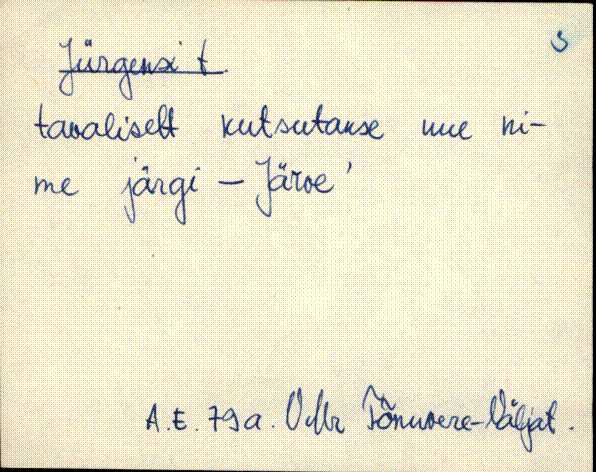 S
Jürgensi t.
tavaliselt kutsutakse uue ni-
me järgi – Järve'
A.E. 79a. VMr Tõnuvere-Väljat.